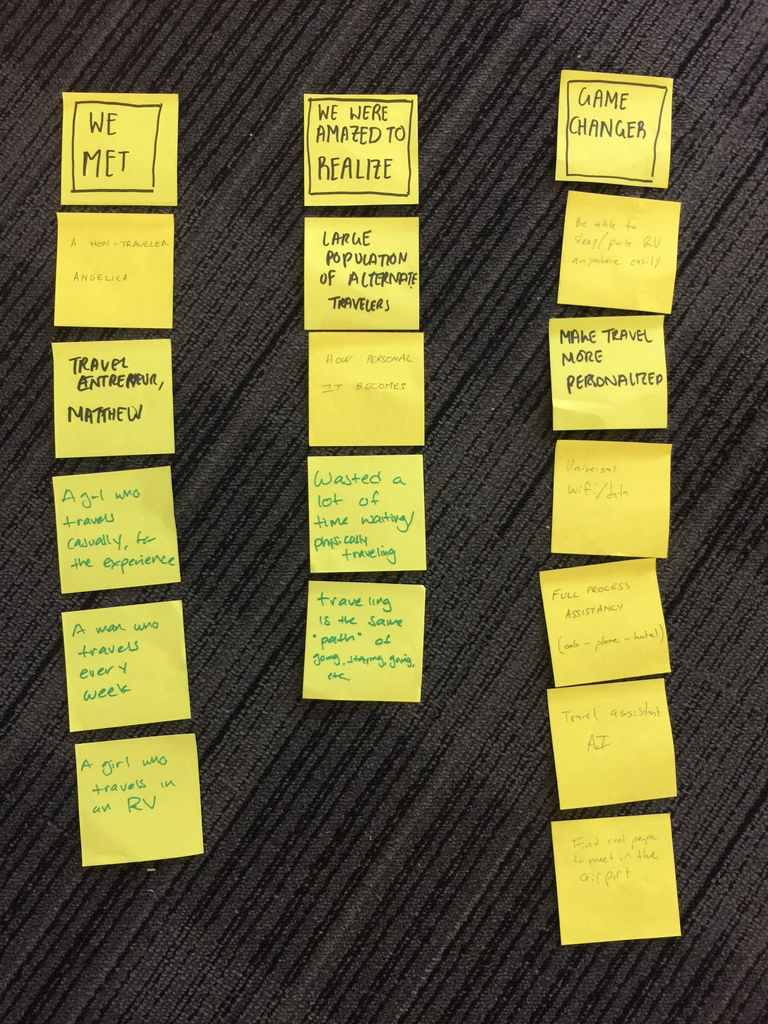 WE
MET
A NON-TRAVELER
ANGELICA
TRAVEL
ENTREPEUR,
MATTHEW
A girl who
travels
casually, for
the experience
A man who
travels
every
week
A girl who
travels in
an RV
WE WERE
AMAZED TO
REALIZE
LARGE
POPULATION
OF ALTERNATE
TRAVELERS
HOW PERSONAL
IT BECOMES
Wasted a
lot of
time waiting/
physically
traveling
traveling
is the same
"path" of
going, staying, going,
etc.
GAME
CHANGER
Be able to
sleep/park RV
anywhere easily
MAKE TRAVEL
MORE
PERSONALIZED
Universal
wifi/data
FULL PROCESS
ASSISTANCY
(cab - plane - hotel)
Travel assistant
AI
Find cool people
to meet in the
airport